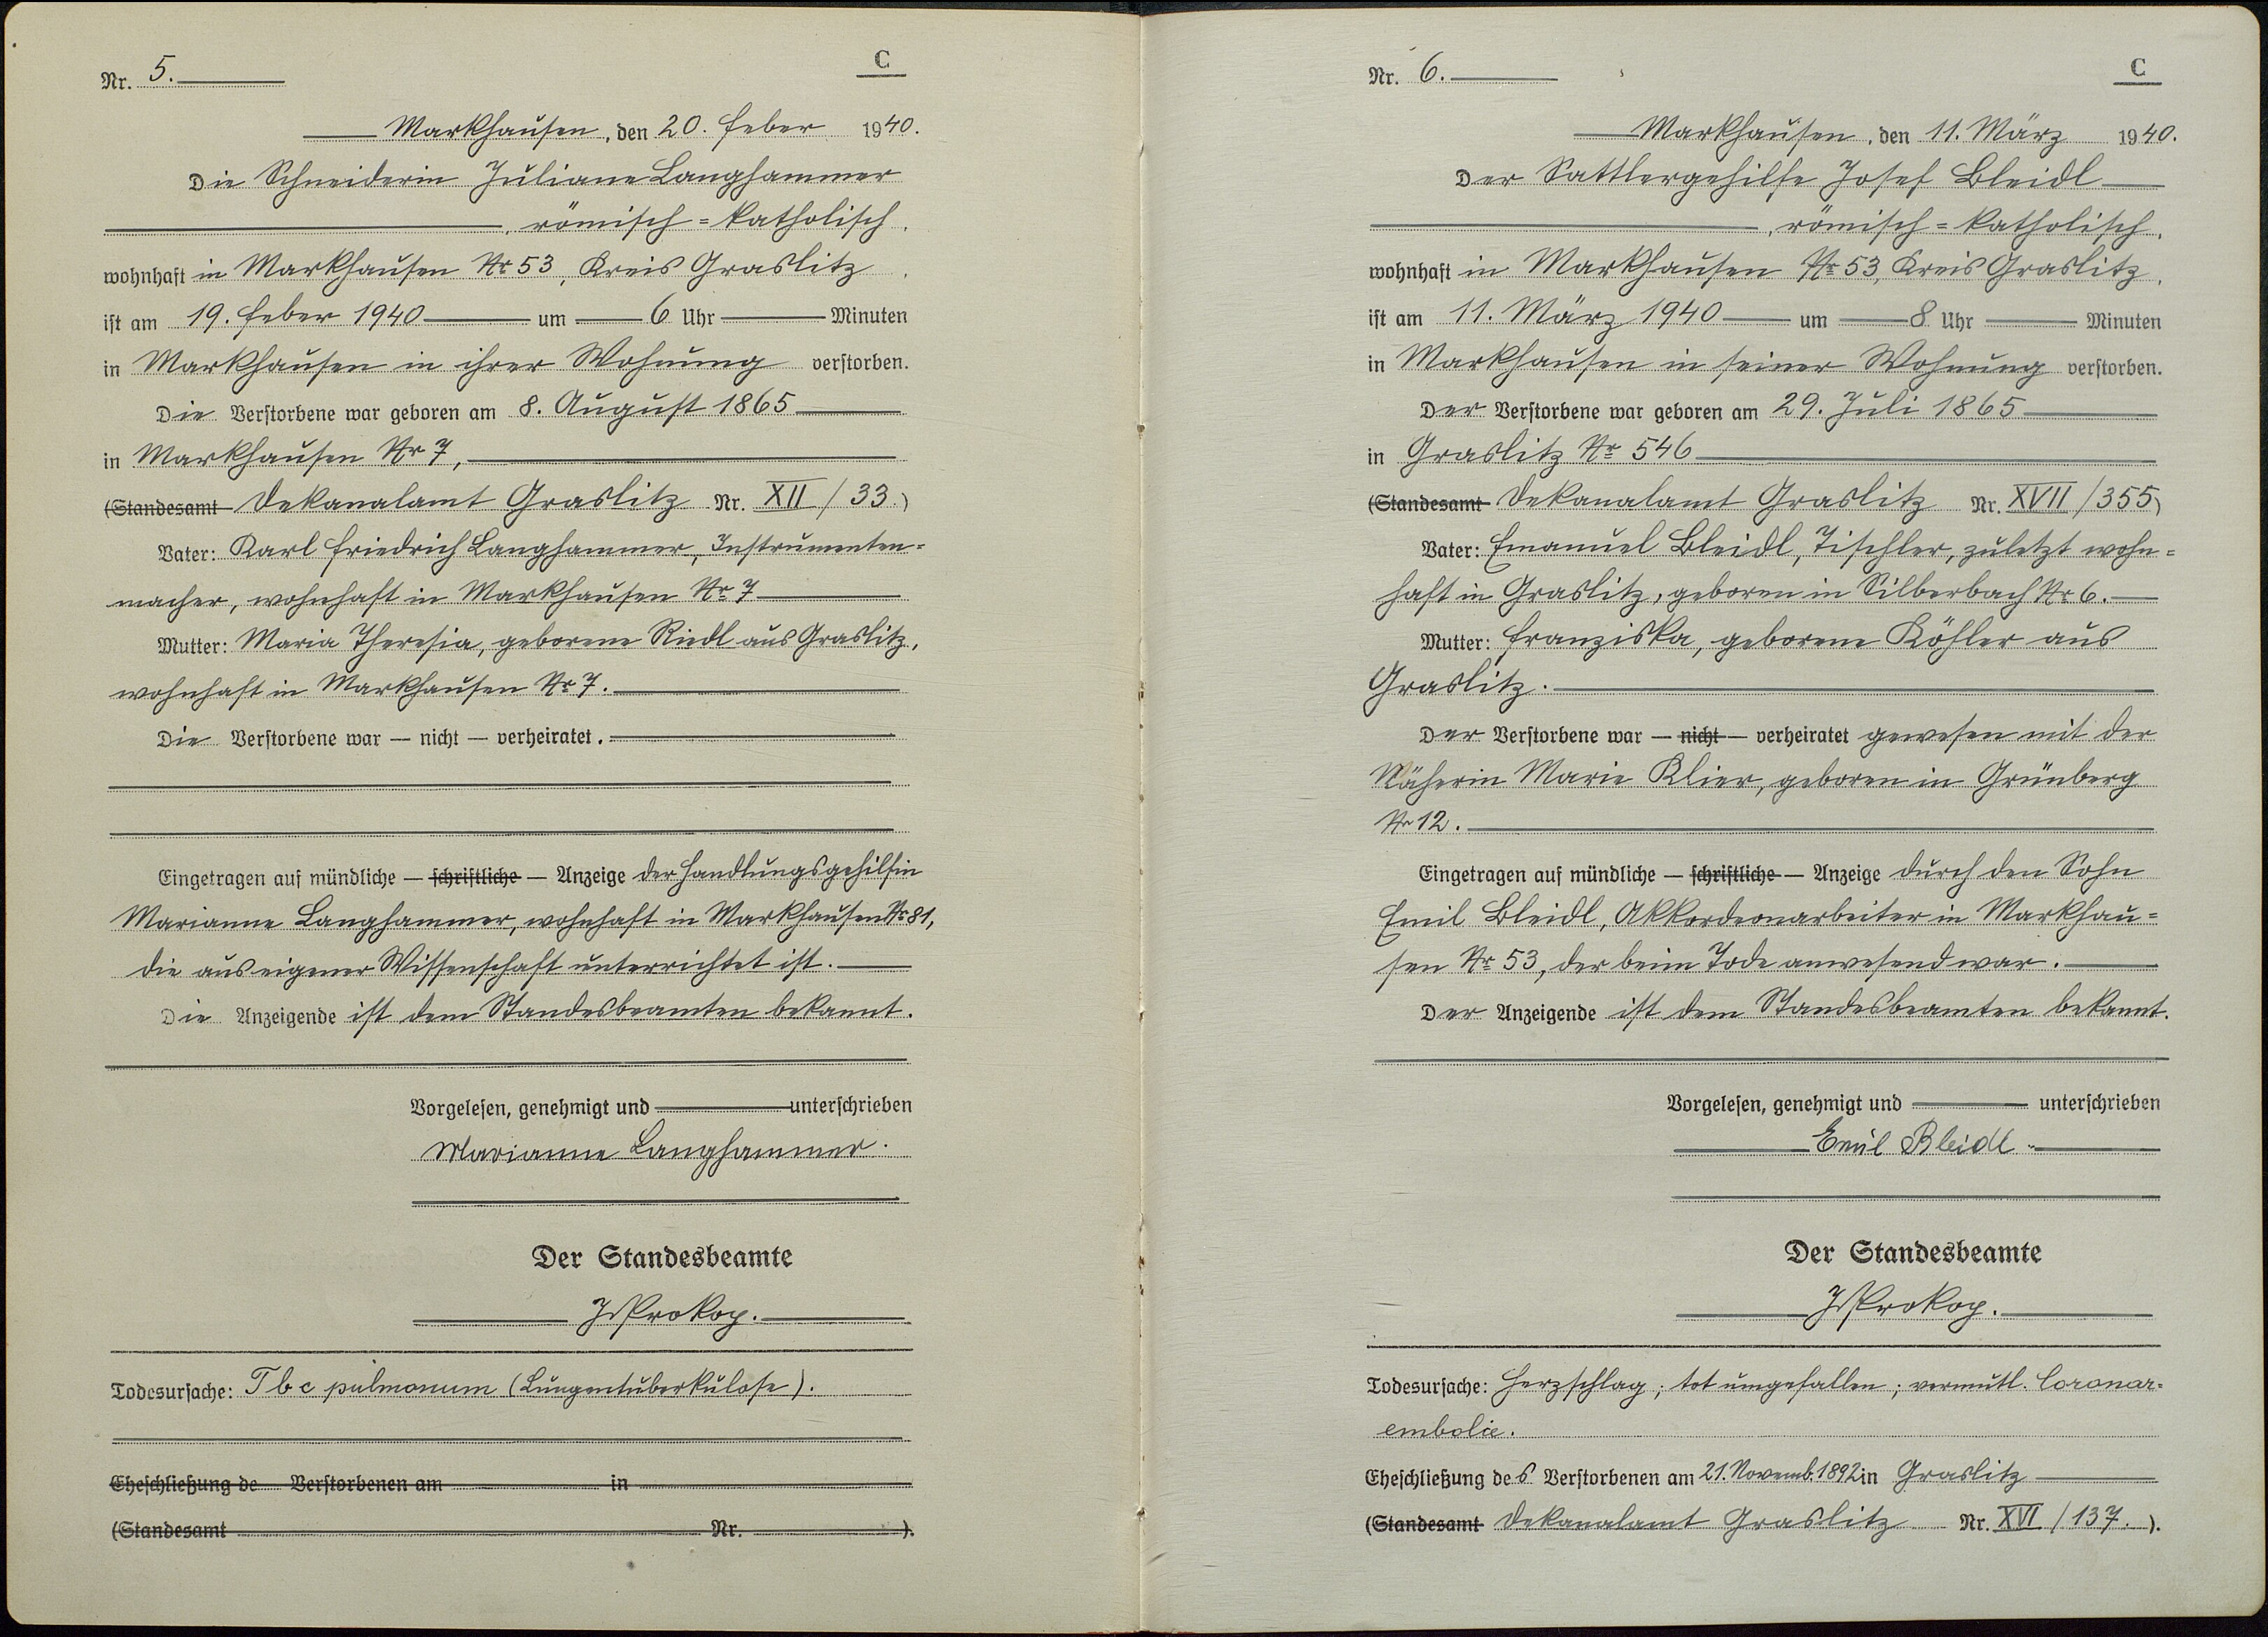 Nr. 5.
C
Markhausen, den 20. Feber 1940.
Die Schneiderin Juliane Langhammer
, römisch=katholisch,
wohnhaft in Markhausen Nr 53, Kreis Graslitz,
ist am 19. Feber 1940 um 6 Uhr Minuten
in Markhausen in ihrer Wohnung verstorben.
Die Verstorbene war geboren am 8. August 1865
in Markhausen Nr 7,
(Standesamt Dekanalamt Graslitz Nr. XII / 33.)
Vater: Karl Friedrich Langhammer, Instrumenten=
macher, wohnhaft in Markhausen Nr 7
Mutter: Maria Theresia, geborene Riedl aus Graslitz,
wohnhaft in Markhausen Nr 7.
Die Verstorbene war — nicht — verheiratet.
Eingetragen auf mündliche — schriftliche — Anzeige der Handlungsgehilfin
Marianne Langhammer, wohnhaft in Markhausen Nr 81,
die aus eigener Wissenschaft unterrichtet ist.
Die Anzeigende ist dem Standesbeamten bekannt.
Vorgelesen, genehmigt und unterschrieben
Marianne Langhammer.
Der Standesbeamte
J Prokop.
Todesursache: Tbc pulmonum (Lungentuberkulose).
Eheschließung de Verstorbenen am in
(Standesamt Nr. ).
Nr. 6.
C
Markhausen, den 11. März 1940.
Der Sattlergehilfe Josef Bleidl
, römisch=katholisch,
wohnhaft in Markhausen Nr 53, Kreis Graslitz,
ist am 11. März 1940 um 8 Uhr Minuten
in Markhausen in seiner Wohnung verstorben.
Der Verstorbene war geboren am 29. Juli 1865
in Graslitz Nr 546
(Standesamt Dekanalamt Graslitz Nr. XVII / 355)
Vater: Emanuel Bleidl, Tischler, zuletzt wohn=
haft in Graslitz, geboren in Silberbach Nr 6.
Mutter: Franziska, geborene Köhler aus
Graslitz.
Der Verstorbene war — nicht — verheiratet gewesen mit der
Näherin Marie Klier, geboren in Grünberg
Nr 12.
Eingetragen auf mündliche — schriftliche — Anzeige durch den Sohn
Emil Bleidl, Akkordeonarbeiter in Markhau=
sen Nr 53, der beim Tode anwesend war.
Der Anzeigende ist dem Standesbeamten bekannt.
Vorgelesen, genehmigt und unterschrieben
Emil Bleidl.
Der Standesbeamte
J Prokop.
Todesursache: Herzschlag; tot umgefallen; vermutl. Coronar=
embolie.
Eheschließung des Verstorbenen am 21. Novemb. 1892 in Graslitz
(Standesamt Dekanalamt Graslitz Nr. XVI / 137. ).